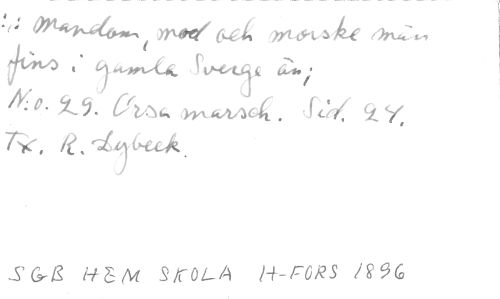 :,: Mandom, mod och morske män
fins i gamla Sverge än;
N.o. 29. Orsa marsch. Sid. 24.
Tx. R. Dybeck.
SGB HEM SKOLA H-FORS 1896